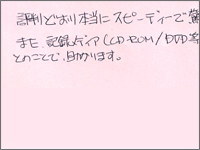 評判どおり本当にスピーディーで驚
また、記録メディア(CD-ROM/DVD等
とのことで、助かります。